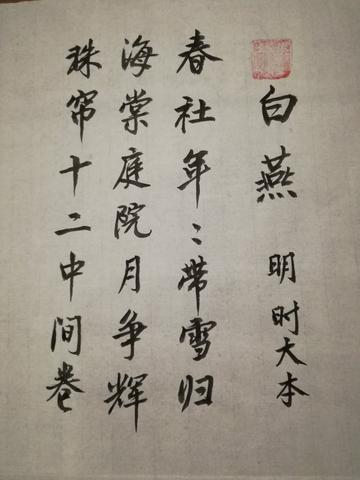 白燕 明时大本
春社年々带雪归
海棠庭院月争辉
珠帘十二中间卷